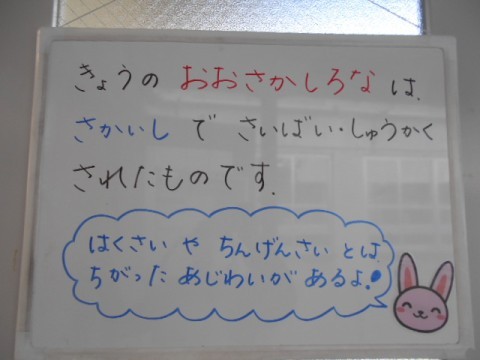 きょうの おおさかしろな は、
さかいし で さいばい・しゅうかく
されたものです。
はくさい や ちんげんさい とは、
ちがった あじわいが あるよ!